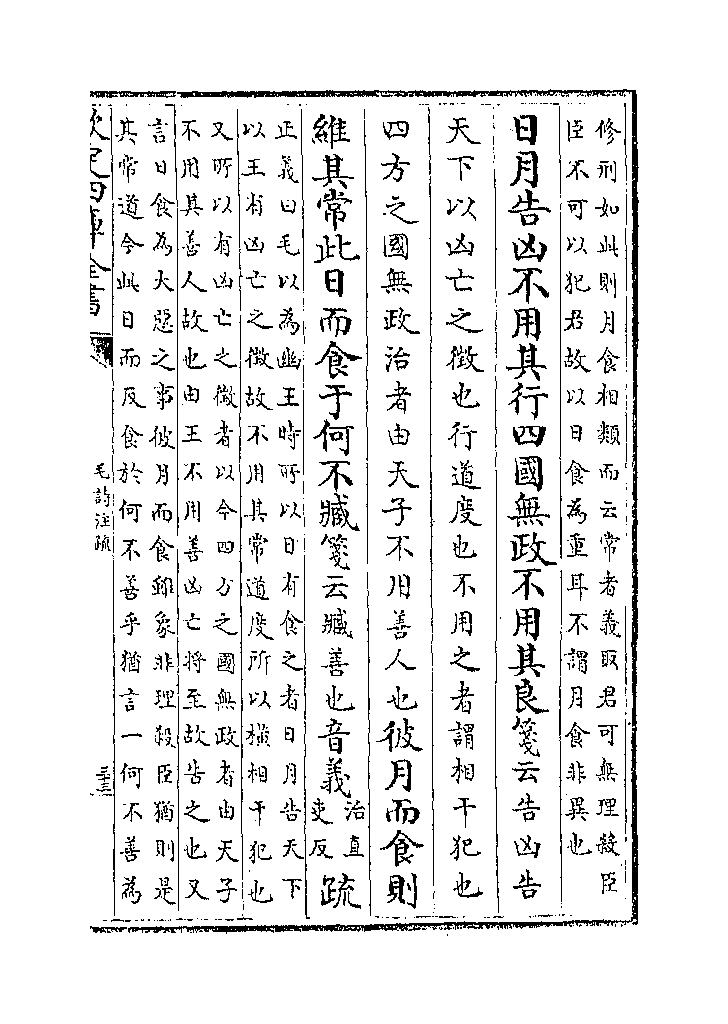 修刑如此則月食相類而云常者義取君可無理殺臣
臣不可以犯君故以日食為重耳不謂月食非異也
日月告凶不用其行四國無政不用其良箋云告凶告
天下以凶亡之徵也行道度也不用之者謂相干犯也
四方之國無政治者由天子不用善人也彼月而食則
維其常此日而食于何不臧箋云臧善也音義治直吏反疏
正義曰毛以為幽王時所以日有食之者日月告天下
以王有凶亡之徵故不用其常道度所以橫相干犯也
又所以有凶亡之徵者以今四方之國無政者由天子
不用其善人故也由王不用善凶亡將至故告之也又
言日食為大惡之事彼月而食雖象非理殺臣猶則是
其常道今此日而反食於何不善乎猶言一何不善為
欽定四庫全書
毛詩注疏
三十三